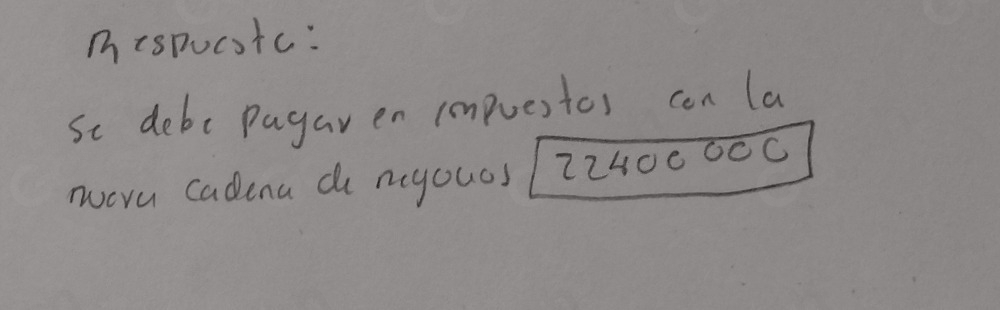 Respuesta:
se debe pagar en impuestos con la
nueva cadena de negocios 22400 000